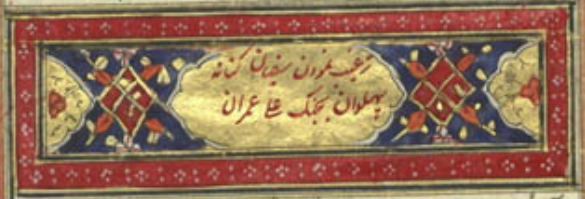 ترغیب نمودن سفیان کنانه
پهلوان بجنگ علی عمران